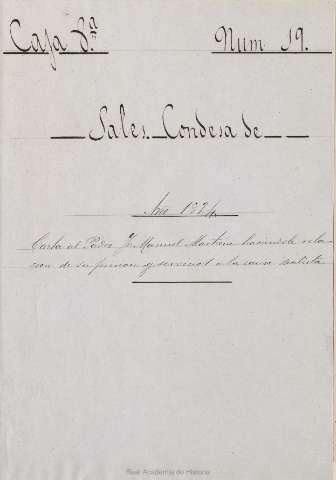 Caja 8.ª Num 19.
Sales Condesa de
Año 1824
Carta al Padre Fr Manuel Martinez haciendole rela-
cion de su prision y servicios a la causa realista
Real Academia de Historia